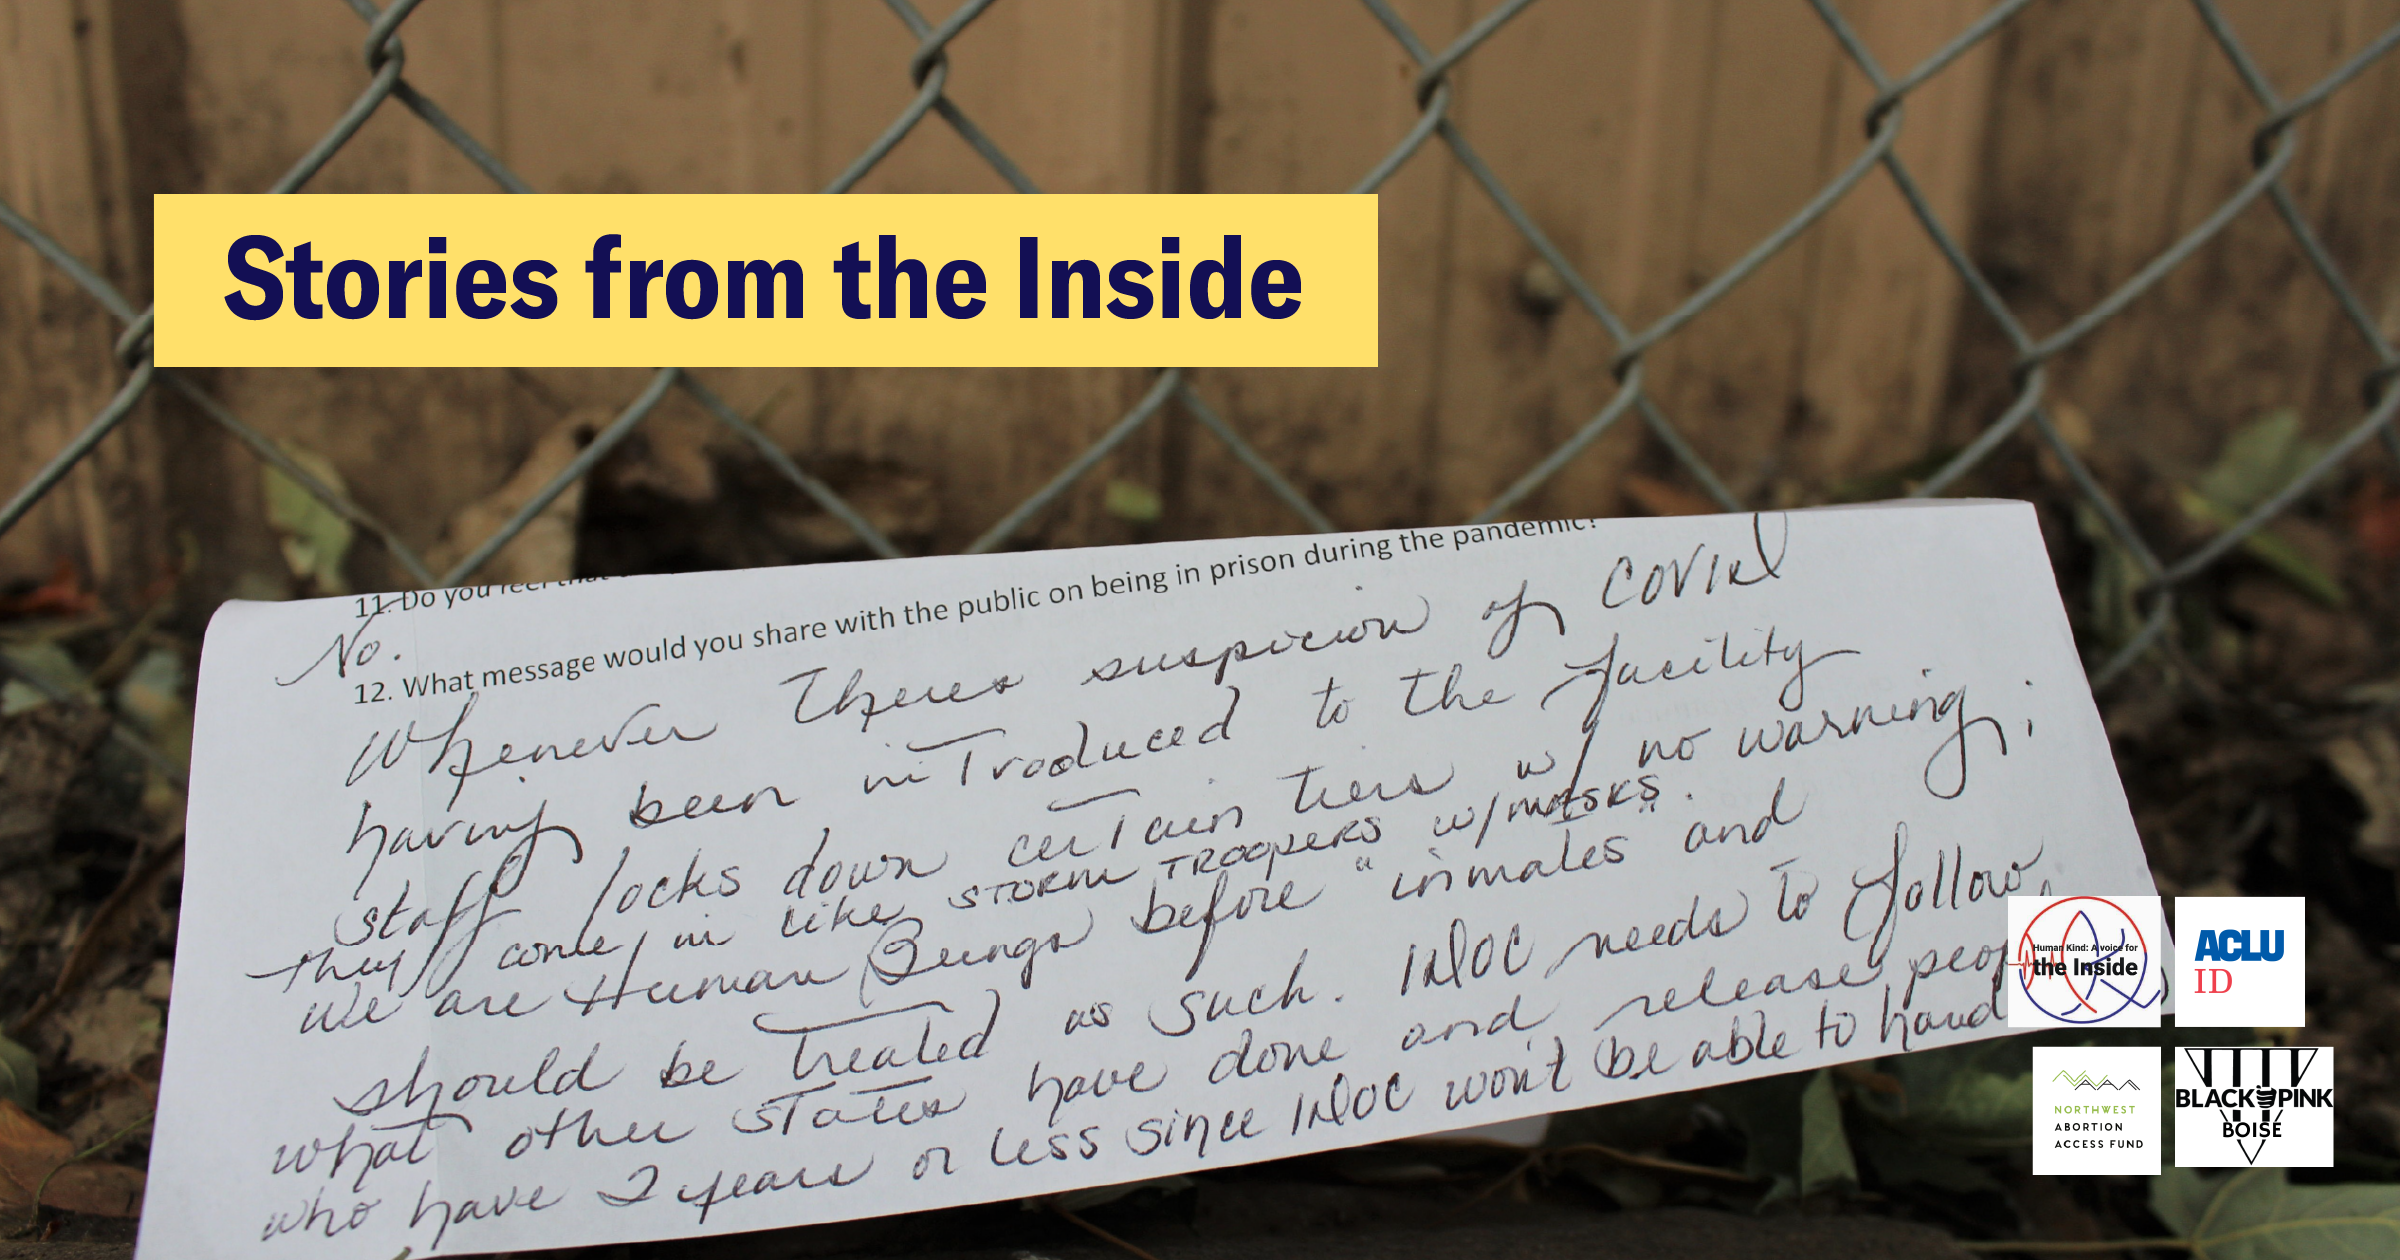 Stories from the Inside
11. Do you feel that
No.
12. What message would you share with the public on being in prison during the pandemic?
Whenever theres suspicion of COVID
having been introduced to the facility
staff locks down certain tiers w/ no warning;
they come in like STORM TROOPERS w/masks.
We are Human Beings before "inmates" and
should be treated as such. IDOC needs to follow
what other states have done and release
who have 2 years or less since IDOC won't be able to
Human Kind: A voice for
the Inside
ACLU
ID
NORTHWEST
ABORTION
ACCESS FUND
BLACK PINK
BOISE